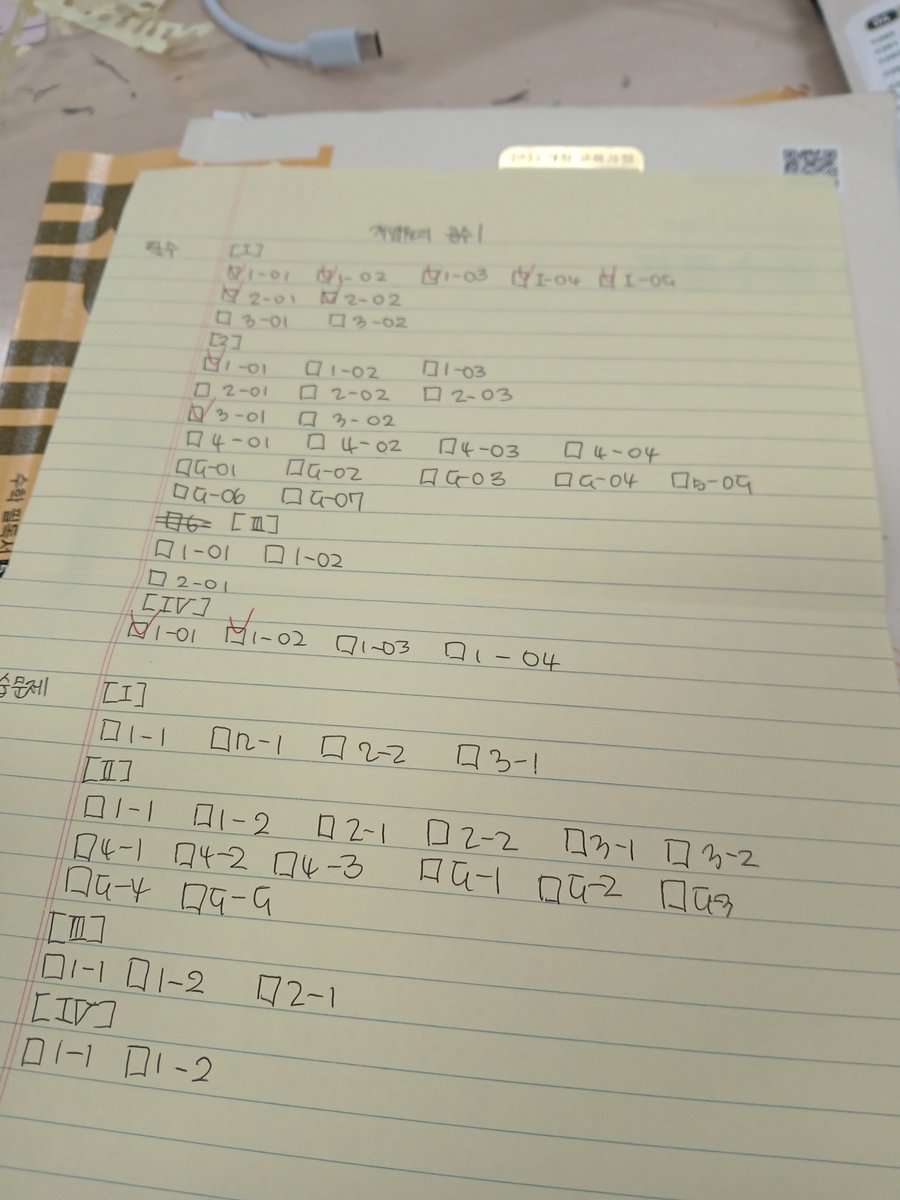 개념원리 공수1
필수 [I]
☑ 1-01 ☑ 1-02 ☑ 1-03 ☑ I-04 ☑ I-05
☑ 2-01 ☑ 2-02
☐ 3-01 ☐ 3-02
[2]
☑ 1-01 ☐ 1-02 ☐ 1-03
☐ 2-01 ☐ 2-02 ☐ 2-03
☑ 3-01 ☐ 3-02
☐ 4-01 ☐ 4-02 ☐ 4-03 ☐ 4-04
☐ 5-01 ☐ 5-02 ☐ 5-03 ☐ 5-04 ☐ 5-05
☐ 5-06 ☐ 5-07
[III]
☐ 1-01 ☐ 1-02
☐ 2-01
[IV]
☑ 1-01 ☑ 1-02 ☐ 1-03 ☐ 1-04
습문제 [I]
☐ 1-1 ☐ 2-1 ☐ 2-2 ☐ 3-1
[II]
☐ 1-1 ☐ 1-2 ☐ 2-1 ☐ 2-2 ☐ 3-1 ☐ 3-2
☐ 4-1 ☐ 4-2 ☐ 4-3 ☐ 5-1 ☐ 5-2 ☐ 5-3
☐ 5-4 ☐ 5-5
[III]
☐ 1-1 ☐ 1-2 ☐ 2-1
[IV]
☐ 1-1 ☐ 1-2
수학 필독서